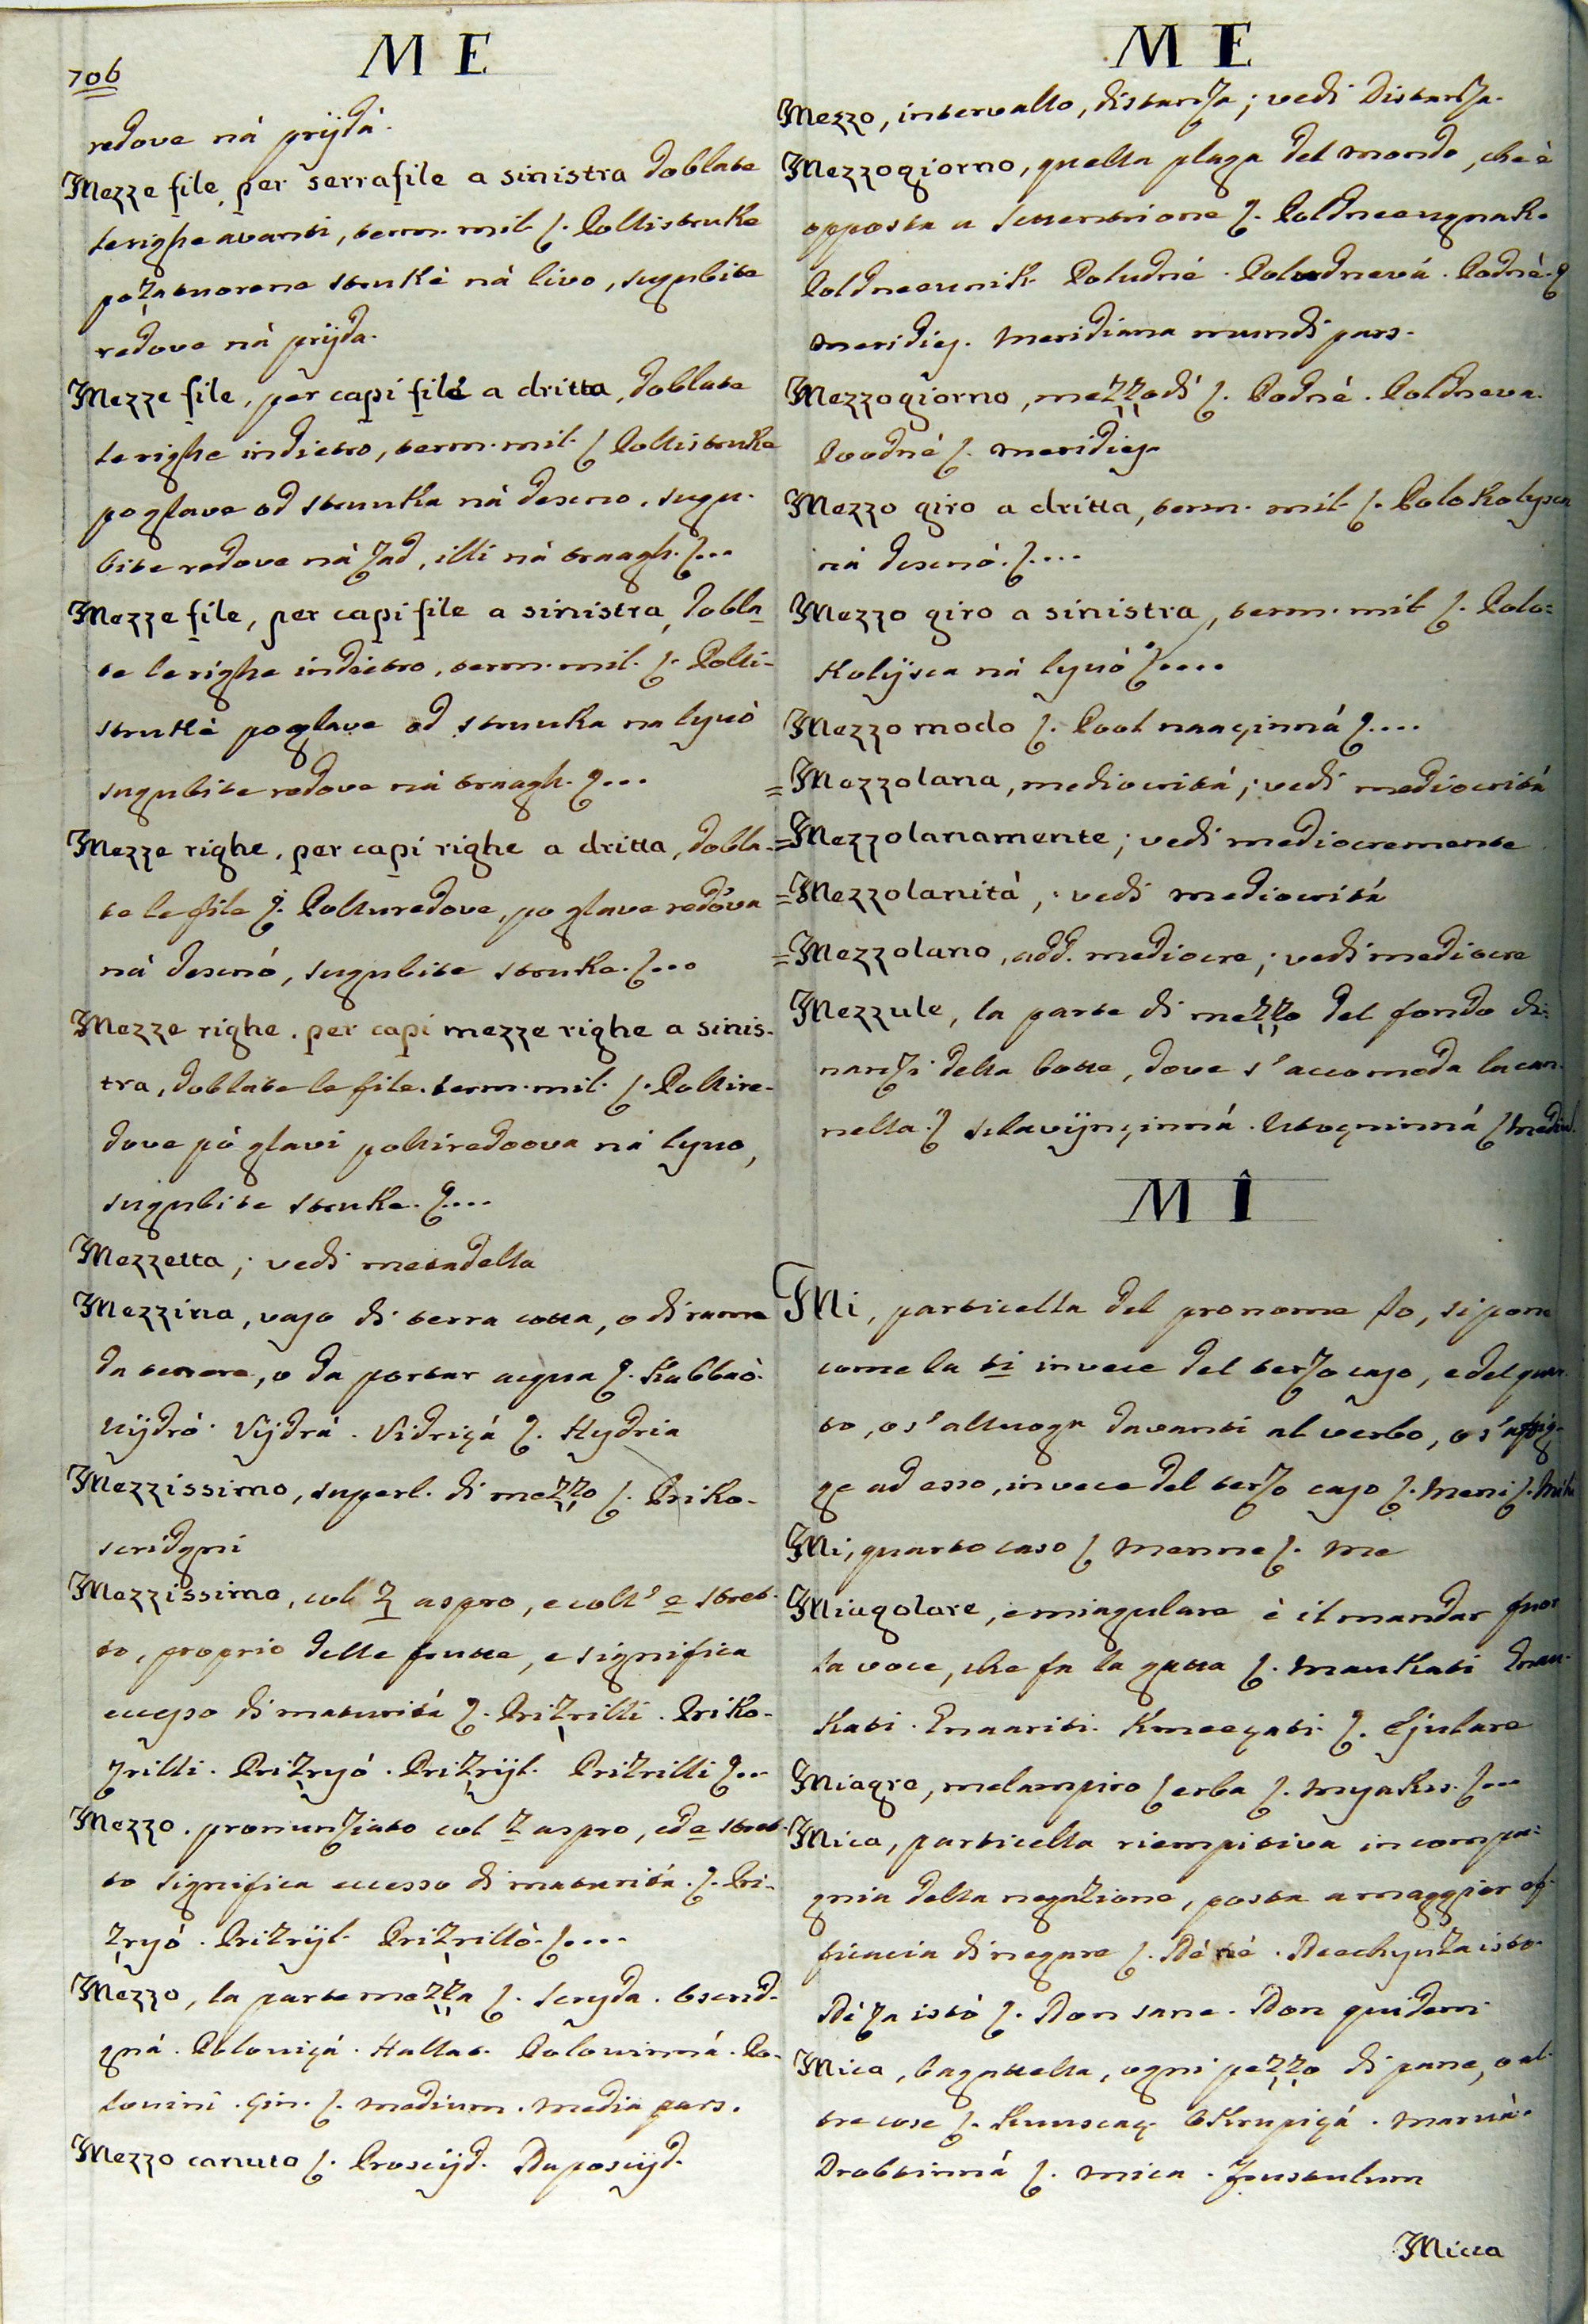 706
M E
redove ná prijdá.
Mezze file, per serrafile a sinistra doblate
le righe avanti, term. mil. ſ. Polustruke
po zatuorene strukè ná livo, sugubite
redove ná prijda.
Mezze file, per capi file a dritta, doblate
le righe indietro, term. mil. ſ. Polustruke
po glave od strunka ná desno, sugu-
bite redove ná zad, illi ná traagh. ſ...
Mezze file, per capi file a sinistra, dobla-
te le righe indietro, term. mil. ſ. Polu-
strukè po glave od strunka na lyuò
sugubite redove ná traagh. ſ...
Mezze righe, per capi righe a dritta, dobla-
te le file ſ. Polluredove, po glave redòva
ná desnó, sugubite struke. ſ...
Mezze righe, per capi mezze righe a sinis-
tra, doblate le file. term. mil. ſ. Pollire-
dove pò glavi polliredoova ná lyuo,
sugubite struke. ſ....
Mezzetta; vedi metadella
Mezzina, vaso di terra cotta, o di rame
da tenere, o da portar acqua ſ. Kabbaò.
Vijdró. Vijdrá. Vidriçá ſ. Hydria
Mezzissimo, superl. di mezzo ſ. Priko-
sridgni
Mezzissimo, col z aspro, e coll' e stret-
to, proprio delle frutte, e significa
eccesso di maturitá ſ. Prizrilli. Priko-
zrilli. Prizryó. Prizrijl. Prizrilli ſ...
Mezzo. pronunziato col z aspro, ed e stret-
to significa eccesso di maturitá. ſ. Pri-
zryó. Prizrijl. Prizrillò. ſ....
Mezzo, la parte mezza ſ. Sryda. Osrid-
gná. Poloviçá. Hallat. Polovinná. Po-
lovini. Gin. ſ. medium. media pars.
Mezzo canuto ſ. Prosijd. Naposijd.
M E
Mezzo, intervallo, distanza; vedi Distanza.
Mezzogiorno, quella plaga del mondo, che è
opposta a Settentrione ſ. Poldneeugnak.
Poldneeunik. Poludné. Poludnevá. Podnè. ſ
meridies. Meridiana mundi pars.
Mezzogiorno, mezzodì ſ. Podné. Poldneva.
Poodné ſ. meridies.
Mezzo giro a dritta, term. mil. ſ. Polokolysca
ná desnó. ſ....
Mezzo giro a sinistra, term. mil. ſ. Polo=
kolijsca ná lyuó ſ....
Mezzo modo ſ. Pool naaçinná ſ....
= Mezzolana, mediocritá; vedi mediocritá
= Mezzolanamente; vedi mediocremente
= Mezzolanità; vedi mediocritá
= Mezzolano, add. mediocre; vedi mediocre
Mezzule, la parte di mezzo del fondo di=
nanzi della botte, dove s'accomoda la can-
nella. ſ
M Î
Mi, particella del pronome Io, si pone
come la ti invece del terzo caso, e del quar-
to, o s'alluoga davanti al verbo, o s'affig-
ge ad esso, invece del terzo caso ſ. Meni ſ. Mihi
Mi, quarto caso ſ Menne ſ. Me
Miagolare, e miagulare è il mandar fuor
la voce, che fa la gatta ſ. Maukati Emau-
kati. Emaariti. Kmeeçati. ſ. Ejulare
Miagro, melampiro ſ erba ſ. Myakro. ſ...
Mica, particella riempitiva in compa=
gnia della negazione, posta a maggior ef-
ficacia di negare ſ. Né né. Neechyuza isto.
Né za istó ſ. Non sane. Non quidem.
Mica, bagattella, ogni pezzo di pane, o al-
tre cose ſ. Okrupiçá. Marvá.
Drobtinná ſ. mica. frustulum
Micca